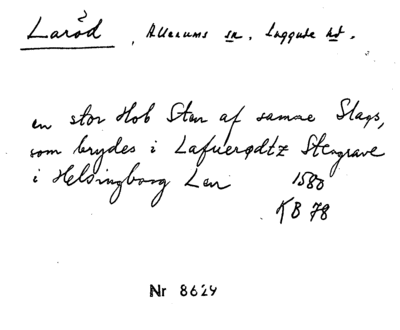 Laröd, Allerums sn. Luggude hd.
en stor Hob Sten af samme Slags,
som brydes i Lafuerødtz Stengrave
i Helsingborg Len 1580
KB 78
Nr 8629